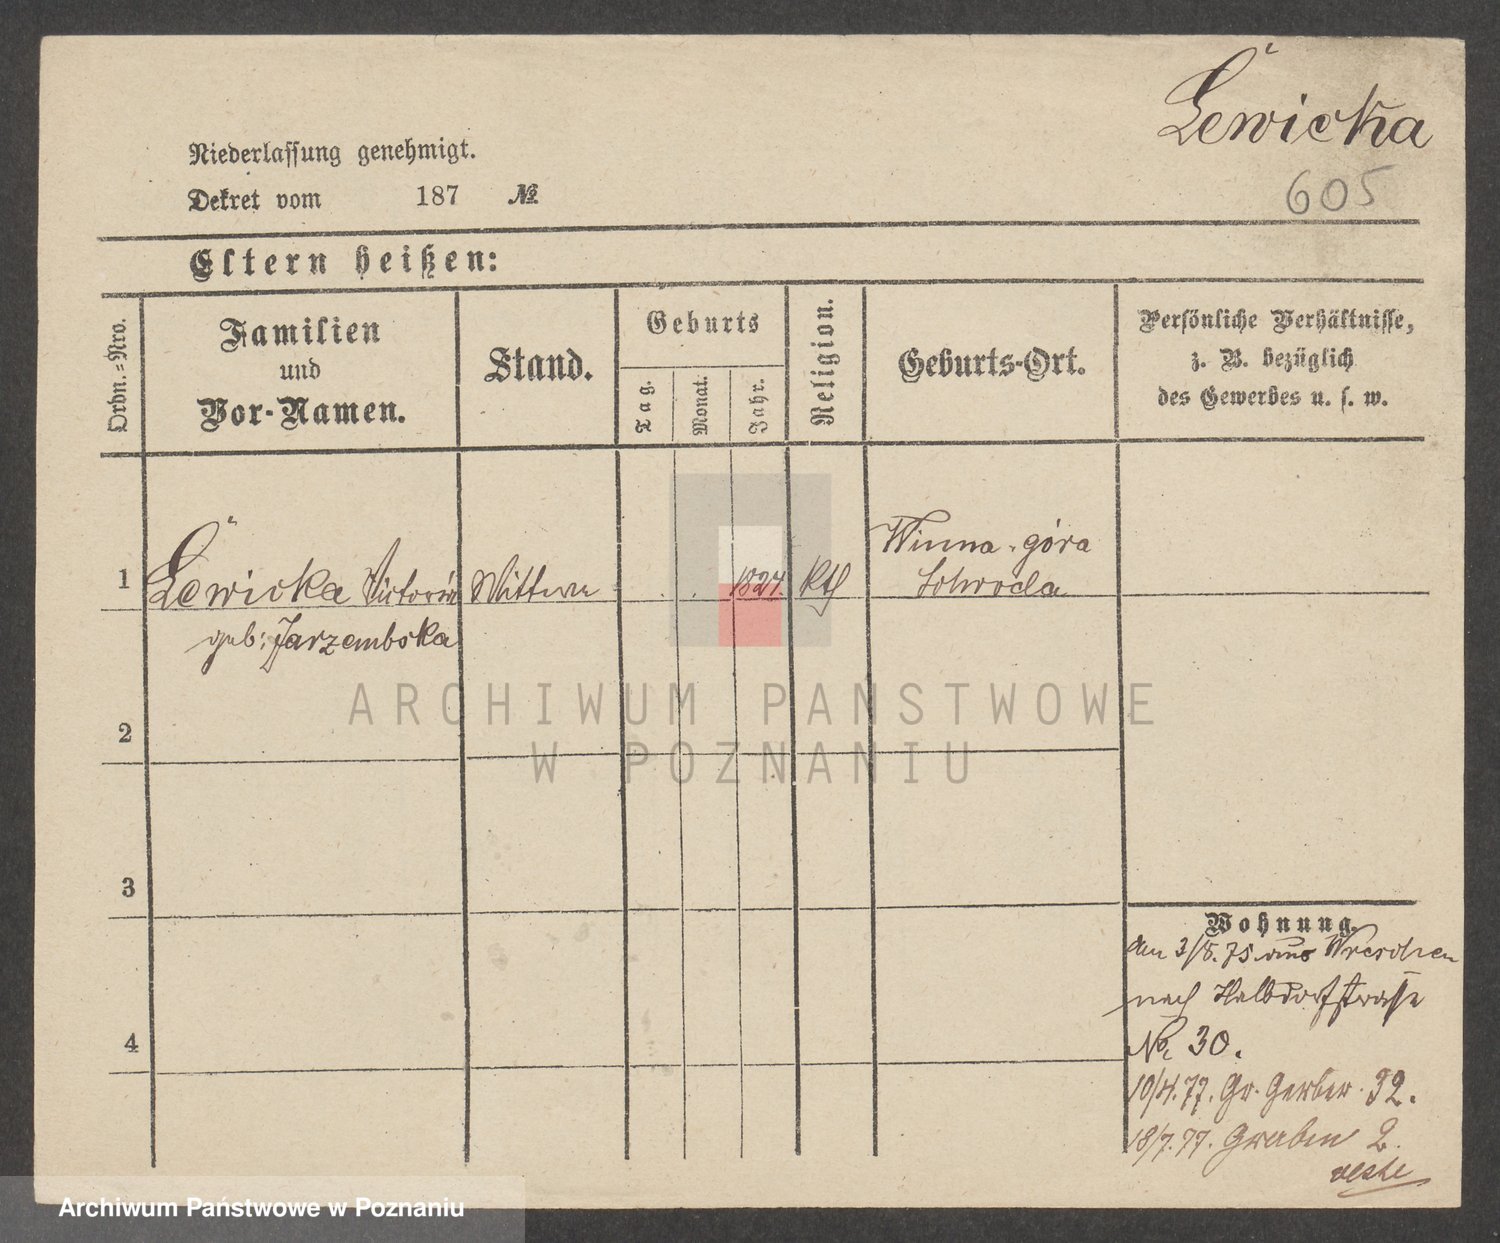 Lewicka
605
Niederlassung genehmigt.
Dekret vom 187 №
Eltern heißen:
Ordn.=Nro.
Familien
und
Vor-Namen.
Stand.
Geburts
Tag.
Monat.
Jahr.
Religion.
Geburts-Ort.
Persönliche Verhältnisse,
z. B. bezüglich
des Gewerbes u. s. w.
1 Lewicka Victoria Wittwe 1824. Kth Winna-góra
Schroda
geb: Jarzembska
2
3
4
Wohnung.
am 3/8. 75 aus Wreschen
nach Halbdorfstrasse
No. 30.
10/4. 77. Gr. Gerber. 32.
18/7. 77. Graben 2.
ARCHIWUM PAŃSTWOWE
W POZNANIU
Archiwum Państwowe w Poznaniu